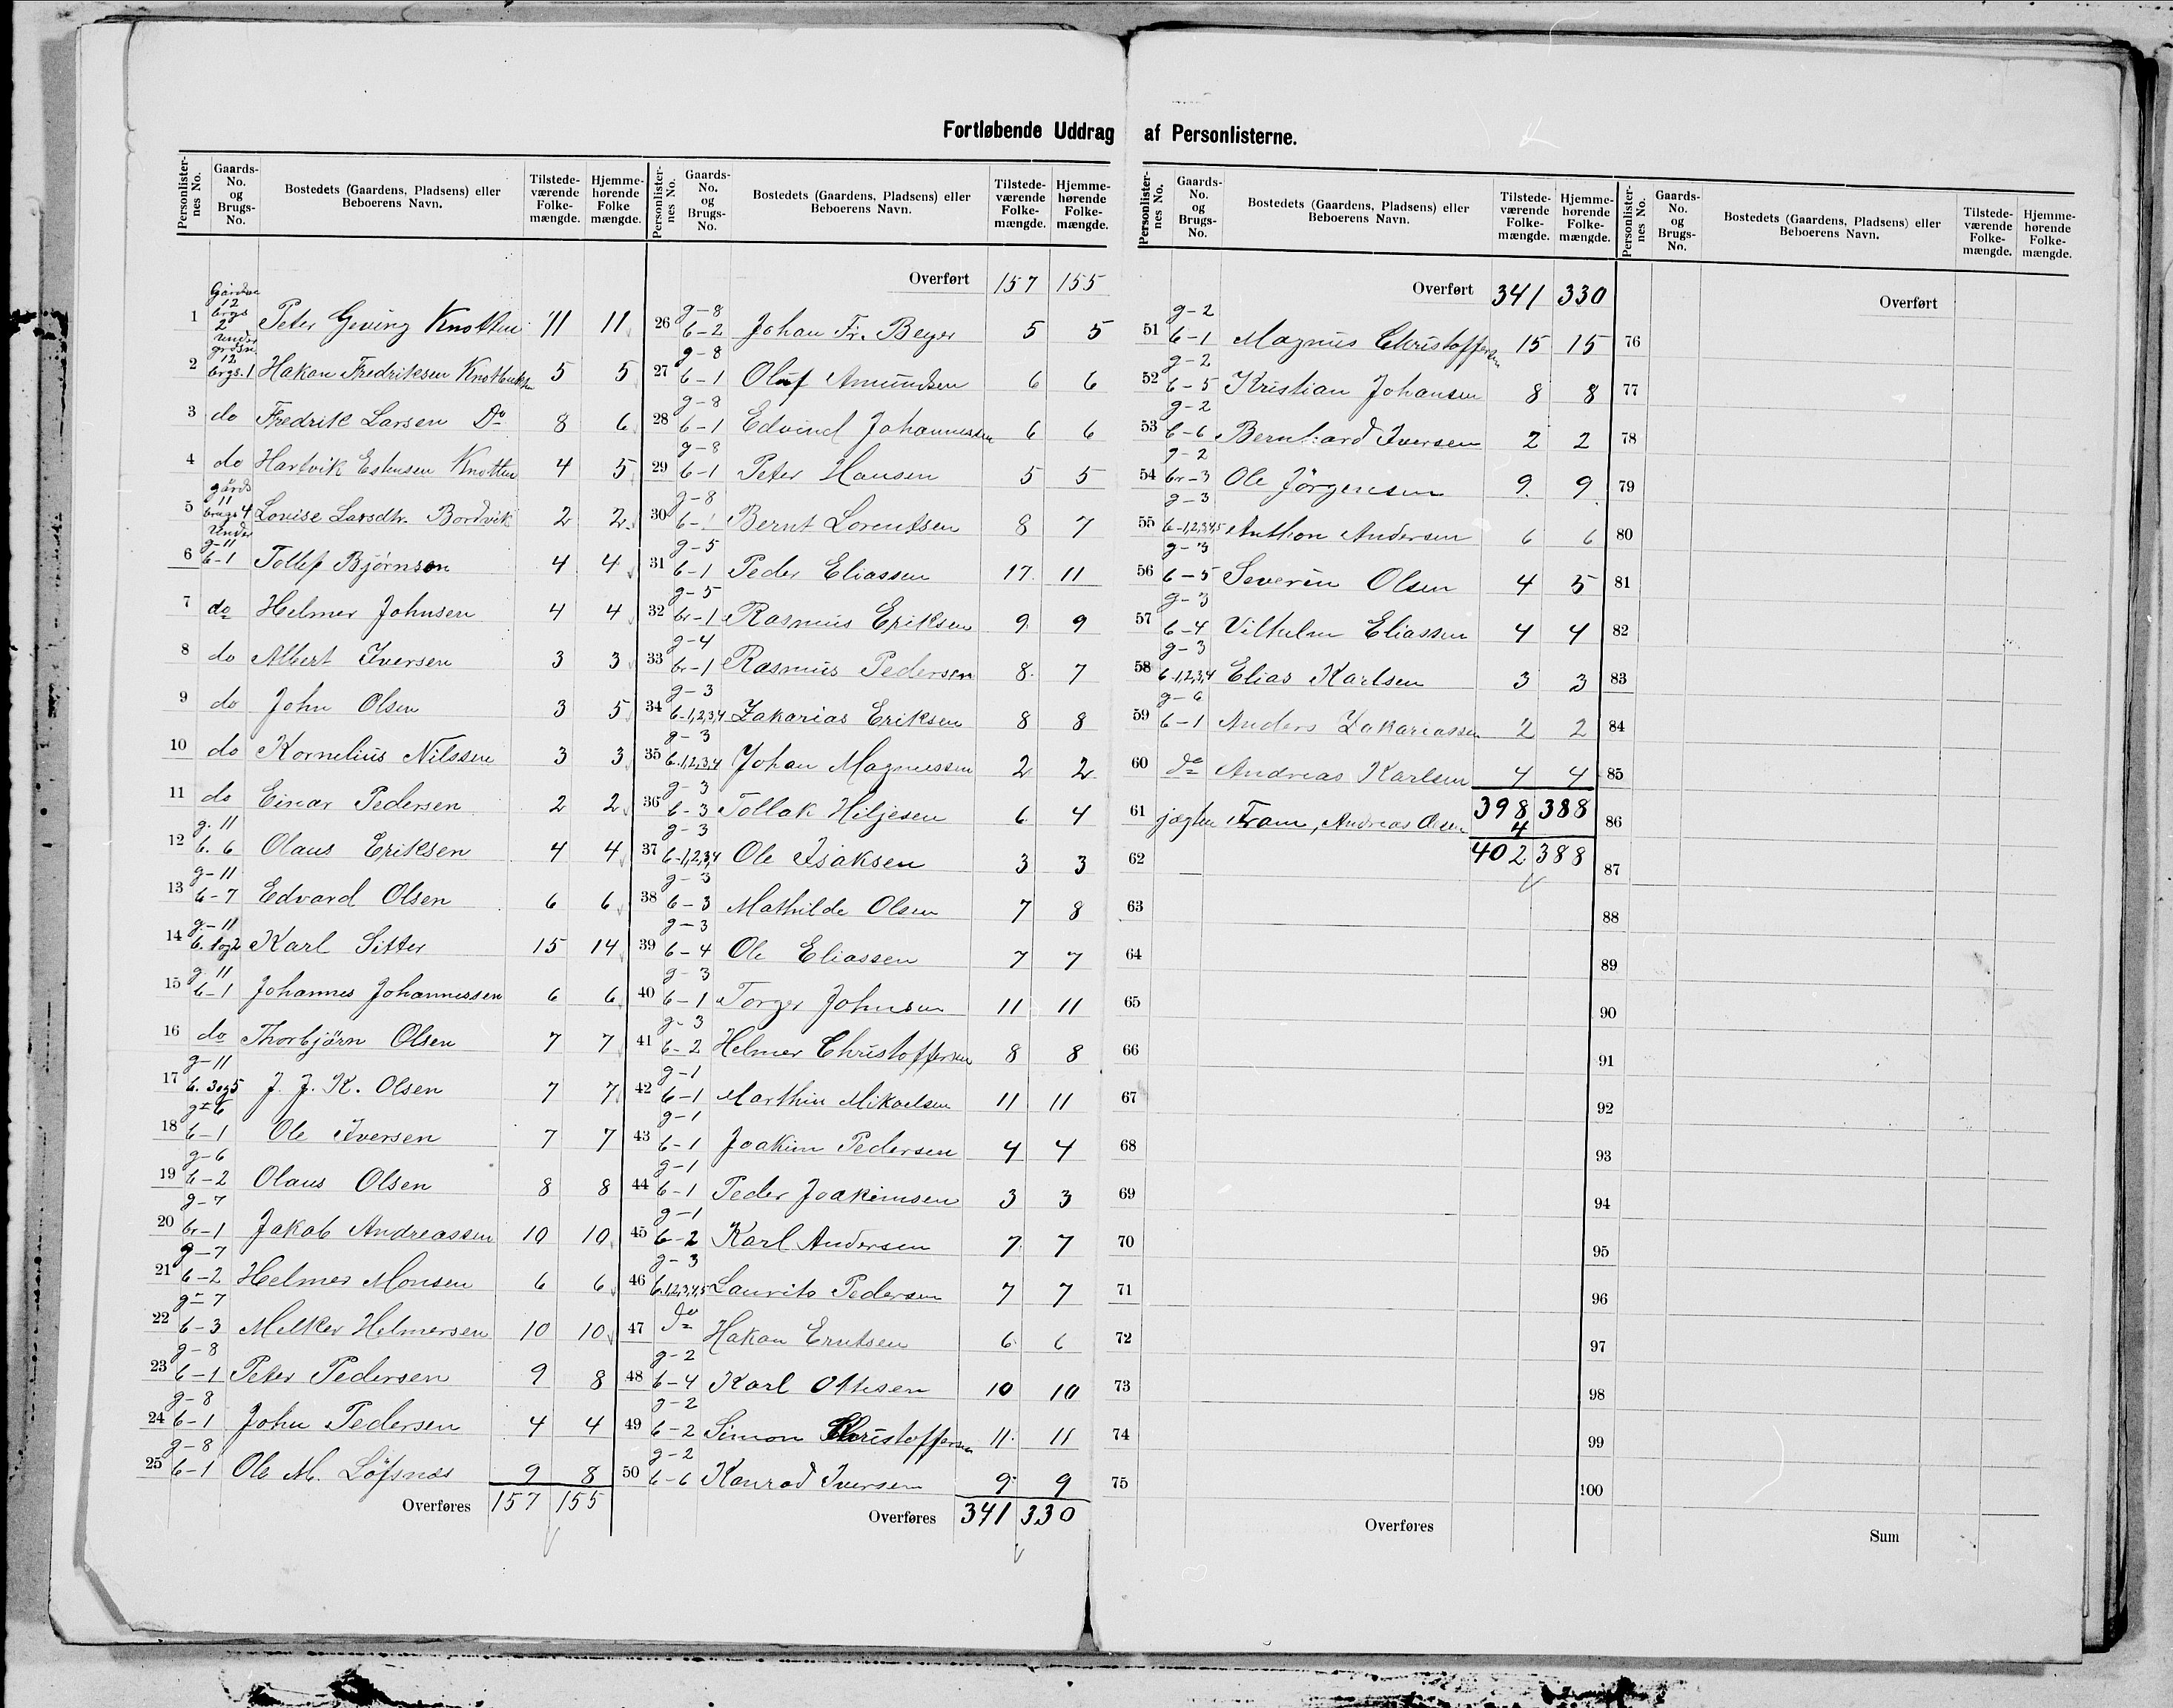 Fortløbende Uddrag af Personlisterne.
Personlister-nes No. | Gaards-No. og Brugs-No. | Bostedets (Gaardens, Pladsens) eller Beboerens Navn. | Tilstede-værende Folke-mængde. | Hjemme-hørende Folke mængde.
1 | Gårdsn 12 brgs 2 | Peter Geving Knotten | 11 | 11
2 | under grdsn. 12 brgs. 1 | Hakon Fredriksen | 5 | 5
3 | do | Fredrik Larsen Do | 8 | 6
4 | do | Hartvik Estensen Knotten | 4 | 5
5 | gårds 11 brugs 4 | Lovise Larsdtr. Bordvik | 2 | 2
6 | Under g-11 b-1 | Tollef Bjørnson | 4 | 4
7 | do | Helmer Johnsen | 4 | 4
8 | do | Albert Iversen | 3 | 3
9 | do | John Olsen | 3 | 5
10 | do | Kornelius Nilssen | 3 | 3
11 | do | Einar Pedersen | 2 | 2
12 | g. 11 b. 6 | Olaus Eriksen | 4 | 4
13 | g-11 b-7 | Edvard Olsen | 6 | 6
14 | g-11 b. 1og2 | Karl Sitter | 15 | 14
15 | g. 11 b-1 | Johannes Johannessen | 6 | 6
16 | do | Thorbjörn Olsen | 7 | 7
17 | g-11 b. 3og5 | J. J. K. Olsen | 7 | 7
18 | g-6 b-1 | Ole Iversen | 7 | 7
19 | g-6 b-2 | Olaus Olsen | 8 | 8
20 | g-7 br-1 | Jakob Andreassen | 10 | 10
21 | g-7 b-2 | Helmer Monsen | 6 | 6
22 | g-7 b-3 | Melker Helmersen | 10 | 10
23 | g-8 b-1 | Peter Pedersen | 9 | 8
24 | g-8 b-1 | John Pedersen | 4 | 4
25 | g-8 b-1 | Ole M. Löfsnæs | 9 | 8
Overføres | 157 | 155
Personlister-nes No. | Gaards-No. og Brugs-No. | Bostedets (Gaardens, Pladsens) eller Beboerens Navn. | Tilstede-værende Folke-mængde. | Hjemme-hørende Folke-mængde.
Overført | 157 | 155
26 | g-8 b-2 | Johan Fr. Beyer | 5 | 5
27 | g-8 b-1 | Oluf Amundsen | 6 | 6
28 | g-8 b-1 | Edvind Johannessen | 6 | 6
29 | g-8 b-1 | Peter Hansen | 5 | 5
30 | g-8 b-1 | Bernt Lorentsen | 8 | 7
31 | g-5 b-1 | Peder Eliassen | 17 | 11
32 | g-5 br-1 | Rasmus Eriksen | 9 | 9
33 | g-4 br-1 | Rasmus Pedersen | 8 | 7
34 | g-3 b-1,2,3,4 | Zakarias Eriksen | 8 | 8
35 | g-3 b.1,2,3,4 | Johan Magnussen | 2 | 2
36 | g-3 b-3 | Tollak Hiljesen | 6 | 4
37 | g-3 b-1,2,3,4 | Ole Isaksen | 3 | 3
38 | g-3 b-3 | Mathilde Olsen | 7 | 8
39 | g-3 b-4 | Ole Eliassen | 7 | 7
40 | g-3 b-1 | Torger Johnsen | 11 | 11
41 | g-3 b-2 | Helmer Christoffersen | 8 | 8
42 | g-1 b-1 | Marthin Mikaelsen | 11 | 11
43 | g-1 b-1 | Joakim Pedersen | 4 | 4
44 | g-1 b-1 | Peder Joakimsen | 3 | 3
45 | g-1 b-2 | Karl Andersen | 7 | 7
46 | g-3 b.1,2,3,4,5 | Laurits Pedersen | 7 | 7
47 | do | Hakon Erntsen | 6 | 6
48 | g-2 b-4 | Karl Ottesen | 10 | 10
49 | g-2 b-2 | Simon Christoffersen | 11 | 11
50 | g-2 b-6 | Konrad Iversen | 9 | 9
Overføres | 341 | 330
Personlister-nes No. | Gaards-No. og Brugs-No. | Bostedets (Gaardens, Pladsens) eller Beboerens Navn. | Tilstede-værende Folke-mængde. | Hjemme-hørende Folke-mængde.
Overført | 341 | 330
51 | g-2 b-1 | Magnus Christoffersen | 15 | 15
52 | g-2 b-5 | Kristian Johansen | 8 | 8
53 | g-2 b-6 | Bernhard Iversen | 2 | 2
54 | g-2 br-3 | Ole Jörgensen | 9 | 9
55 | g-3 b-1,2,3,4,5 | Anthon Andersen | 6 | 6
56 | g-3 b-5 | Severin Olsen | 4 | 5
57 | g-3 b-4 | Vilhelm Eliassen | 4 | 4
58 | g-3 b-1,2,3,4 | Elias Karlsen | 3 | 3
59 | g-6 b-1 | Anders Zakariassen | 2 | 2
60 | do | Andreas Karlsen | 4 | 4
398 | 388
61 | jægten Fram, Andreas Olsen | 4
62 | 402 | 388
63
64
65
66
67
68
69
70
71
72
73
74
75
Overføres
Personlister-nes No. | Gaards-No. og Brugs-No. | Bostedets (Gaardens, Pladsens) eller Beboerens Navn. | Tilstede-værende Folke-mængde. | Hjemme-hørende Folke-mængde.
Overført
76
77
78
79
80
81
82
83
84
85
86
87
88
89
90
91
92
93
94
95
96
97
98
99
100
Sum